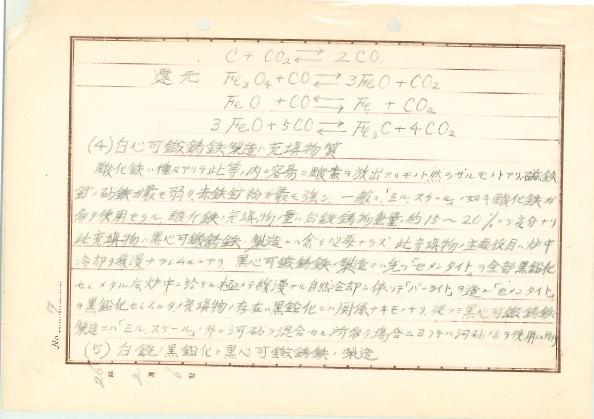 C + CO₂ ⇄ 2CO
還元 Fe₃O₄ + CO ⇄ 3FeO + CO₂
FeO + CO ⇄ Fe + CO₂
3FeO + 5CO ⇄ Fe₃C + 4CO₂
(4) 白心可鍛鋳鉄製造ト充填物質
酸化鉄ハ種々アリテ此等ノ内ニ容易ニ酸素ヲ放出スルモノト然ラザルモノトアリ、磁鉄
鉱ハ最モ弱ク、赤鉄鉱粉ガ最モ強シ、一般ニハ「ミル、スケール」ノ如キ酸化鉄ガ
多ク使用セラル、酸化鉄ノ充填物ノ量ハ白銑鋳物重量ノ約15～20%ニテ充分ナリ
此充填物ハ黒心可鍛鋳鉄ノ製造ニハ余リ必要ナラズ、此充填物ノ主要役目ハ炉中
冷却ヲ緩漫ナラシムルニアリ、黒心可鍛鋳鉄ノ製造ニハ先ヅ「セメンタイト」ヲ全部黒鉛化
セシメタル后炉中ニ於ケル極メテ緩漫ナル自然冷却ニ依ッテ「パーライト」ヲ造ル「セメンタイト」
ヲ黒鉛化セシムルノ充填物ノ存在ハ黒鉛化ニハ関係ナキモノナリ、従ッテ黒心可鍛鋳鉄
製造ニハ「ミル、スケール」ノ外ニ河砂ヲ混合セル所多ク場合ニヨッテハ河砂ノミヲ使用
(5) 白銑ノ黒鉛化ト黒心可鍛鋳鉄ノ製造
No. 7
26 2